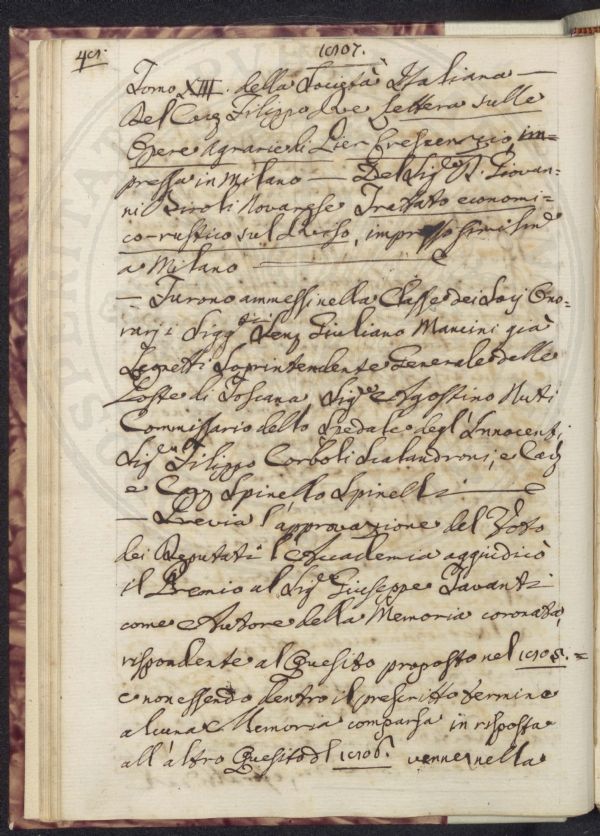 1807.
Tomo XIII. della Società Italiana —
Del Cav. Filippo Re Lettera sulle
Opere agrarie di Pier Crescenzio, im=
pressa in Milano — Del Sig.r D. Giovan=
ni Biroli Novarese Trattato economi=
co-rustico sul Riso, impresso similm.
a Milano
— Furono ammessi nella Classe dei Socj Ono=
rarj i Sigg.ri Giuliano Mancini già
Leonetti Soprintendente Generale delle
Poste di Toscana Sig.re Agostino Nuti
Commissario dello Spedale degl'Innocenti,
Sig.re Filippo Corboli Scalandroni, e Cav.
e Spinello Spinelli
— Previa l'approvazione del Voto
dei Deputati l'Accademia aggiudicò
il Premio al Sig.re Giuseppe Tavanti
come Autore della Memoria coronata,
rispondente al Quesito proposto nel 1805. =
e non essendo dentro il prescritto termine
alcuna Memoria comparsa in risposta
all'altro Quesito del 1806. venne nella